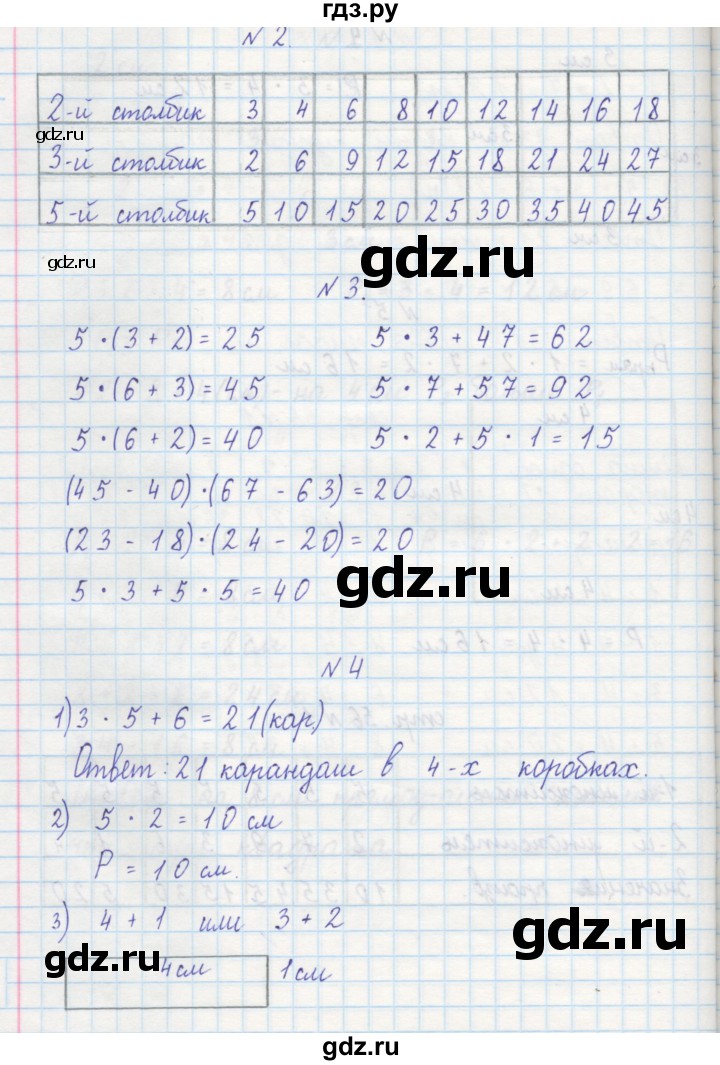 гдз.ру
N 2.
2-й столбик 3 4 6 8 10 12 14 16 18
gdz.ru gdz.ru
3-й столбик 2 6 9 12 15 18 21 24 27
5-й столбик 5 10 15 20 25 30 35 40 45
gdz.ru gdz.ru
N 3.
5 · (3 + 2) = 25 5 · 3 + 47 = 62
5 · (6 + 3) = 45 5 · 7 + 57 = 92
5 · (6 + 2) = 40 5 · 2 + 5 · 1 = 15
(45 - 40) · (67 - 63) = 20
(23 - 18) · (24 - 20) = 20
5 · 3 + 5 · 5 = 40
gdz.ru
N 4
1) 3 · 5 + 6 = 21 (кар)
Ответ: 21 карандаш в 4-х коробках.
2) 5 · 2 = 10 см
P = 10 см.
3) 4 + 1 или 3 + 2
gdz.ru
4 см 1 см
gdz.ru
gdz.ru